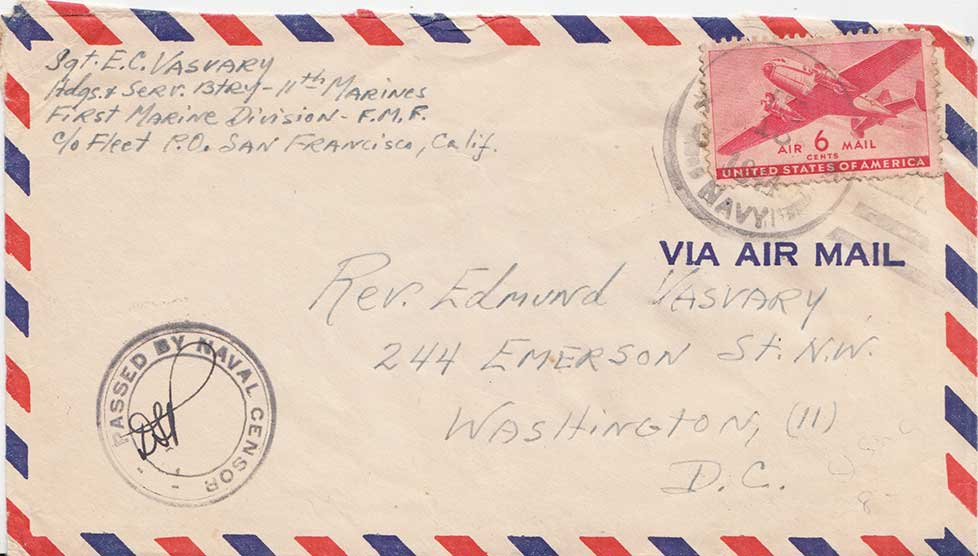 Sgt. E.C. VASVARY
Hdqs. & Serv. Btry - 11th MARINES
First Marine Division - F.M.F.
c/o Fleet P.O. SAN FRANCISCO, Calif.
AIR 6 MAIL
CENTS
UNITED STATES OF AMERICA
NAVY
VIA AIR MAIL
Rev. Edmund VASVARY
244 EMERSON St. N.W.
WASHINGTON, (11)
D.C.
PASSED BY NAVAL CENSOR